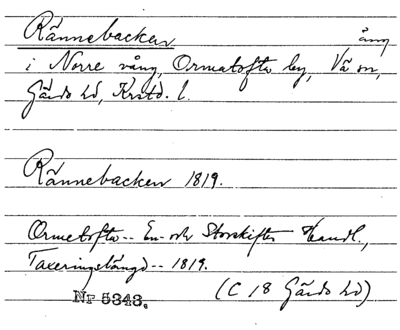 Rännebacken äng
i Norre vång, Ormatofta by, Vä sn,
Gärds hd, Krstd. l.
Rännebacken 1819.
Ormetofta -- En- och Storskiftes Handl.,
Taxeringslängd -- 1819.
Nr 5343. (C 18 Gärds hd)